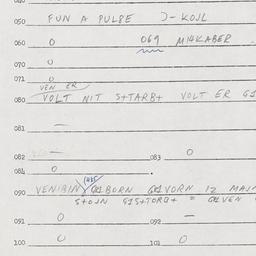 050 FUN A PULPE J-KOJL
060 O 069 MIHKABER
070 O
071 O
VEN ER
080 VOLT NIT S+TARB+ VOLT ER
081 —
082 — 083 O
084 O
090 GEBORN GEVORN IZ
S+OJN GIS+TORB+ = GEVEN
091 O 092 —
100 O 101 O